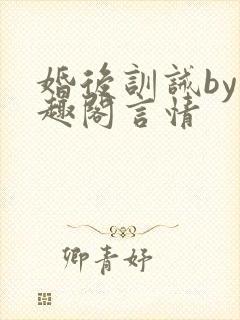 婚後訓誡by
趣閣言情
卿青妤